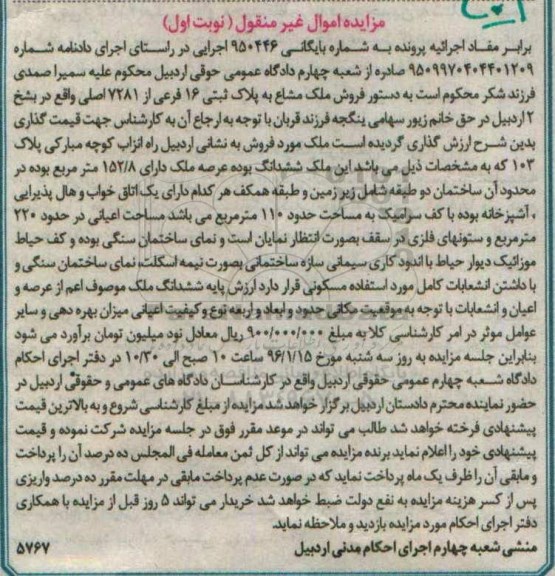 مزایده اموال غیر منقول (نوبت اول)
برابر مفاد اجرائیه پرونده به شماره بایگانی ۹۵۰۴۴۶ اجرایی در راستای اجرای دادنامه شماره
۹۵۰۹۹۷۰۴۰۴۴۰۱۲۰۹ صادره از شعبه چهارم دادگاه عمومی حقوقی اردبیل محکوم علیه سمیرا صمدی
فرزند شکر محکوم است به دستور فروش ملک مشاع به پلاک ثبتی ۱۶ فرعی از ۷۲۸۱ اصلی واقع در بشخ
۲ اردبیل در حق خانم زیور سهامی ینگجه فرزند قربان با توجه به ارجاع آن به کارشناس جهت قیمت گذاری
بدین شرح ارزش گذاری گردیده است ملک مورد فروش به نشانی اردبیل راه انزاب کوچه مبارکی پلاک
۱۰۳ که به مشخصات ذیل می باشد این ملک ششدانگ بوده عرصه ملک دارای ۱۵۲/۸ متر مربع بوده در
محدود آن ساختمان دو طبقه شامل زیر زمین و طبقه همکف هر کدام دارای یک اتاق خواب و هال پذیرایی
، آشپزخانه بوده با کف سرامیک به مساحت حدود ۱۱۰ مترمربع می باشد مساحت اعیانی در حدود ۲۲۰
مترمربع و ستونهای فلزی در سقف بصورت انتظار نمایان است و نمای ساختمان سنگی بوده و کف حیاط
موزائیک دیوار حیاط با اندود کاری سیمانی سازه ساختمانی بصورت نیمه اسکلت، نمای ساختمان سنگی و
با داشتن انشعابات کامل مورد استفاده مسکونی قرار دارد ارزش پایه ششدانگ ملک موصوف اعم از عرصه و
اعیان و انشعابات با توجه به موقعیت مکانی حدود و ابعاد و اربعه نوع و کیفیت اعیانی میزان بهره دهی و سایر
عوامل موثر در امر کارشناسی کلا به مبلغ ۹۰۰/۰۰۰/۰۰۰ ریال معادل نود میلیون تومان برآورد می شود
بنابراین جلسه مزایده به روز سه شنبه مورخ ۹۶/۱/۱۵ ساعت ۱۰ صبح الی ۱۰/۳۰ در دفتر اجرای احکام
دادگاه شعبه چهارم عمومی حقوقی اردبیل واقع در کارشناسان دادگاه های عمومی و حقوقی اردبیل در
حضور نماینده محترم دادستان اردبیل برگزار خواهد شد مزایده از مبلغ کارشناسی شروع و به بالاترین قیمت
پیشنهادی فرخته خواهد شد طالب می تواند در موعد مقرر فوق در جلسه مزایده شرکت نموده و قیمت
پیشنهادی خود را اعلام نماید برنده مزایده می تواند از کل ثمن معامله فی المجلس ده درصد آن را پرداخت
و مابقی آن را ظرف یک ماه پرداخت نماید که در صورت عدم پرداخت مابقی در مهلت مقرر ده درصد واریزی
پس از کسر هزینه مزایده به نفع دولت ضبط خواهد شد خریدار می تواند ۵ روز قبل از مزایده با همکاری
دفتر اجرای احکام مورد مزایده بازدید و ملاحظه نماید.
منشی شعبه چهارم اجرای احکام مدنی اردبیل ۵۷۶۷